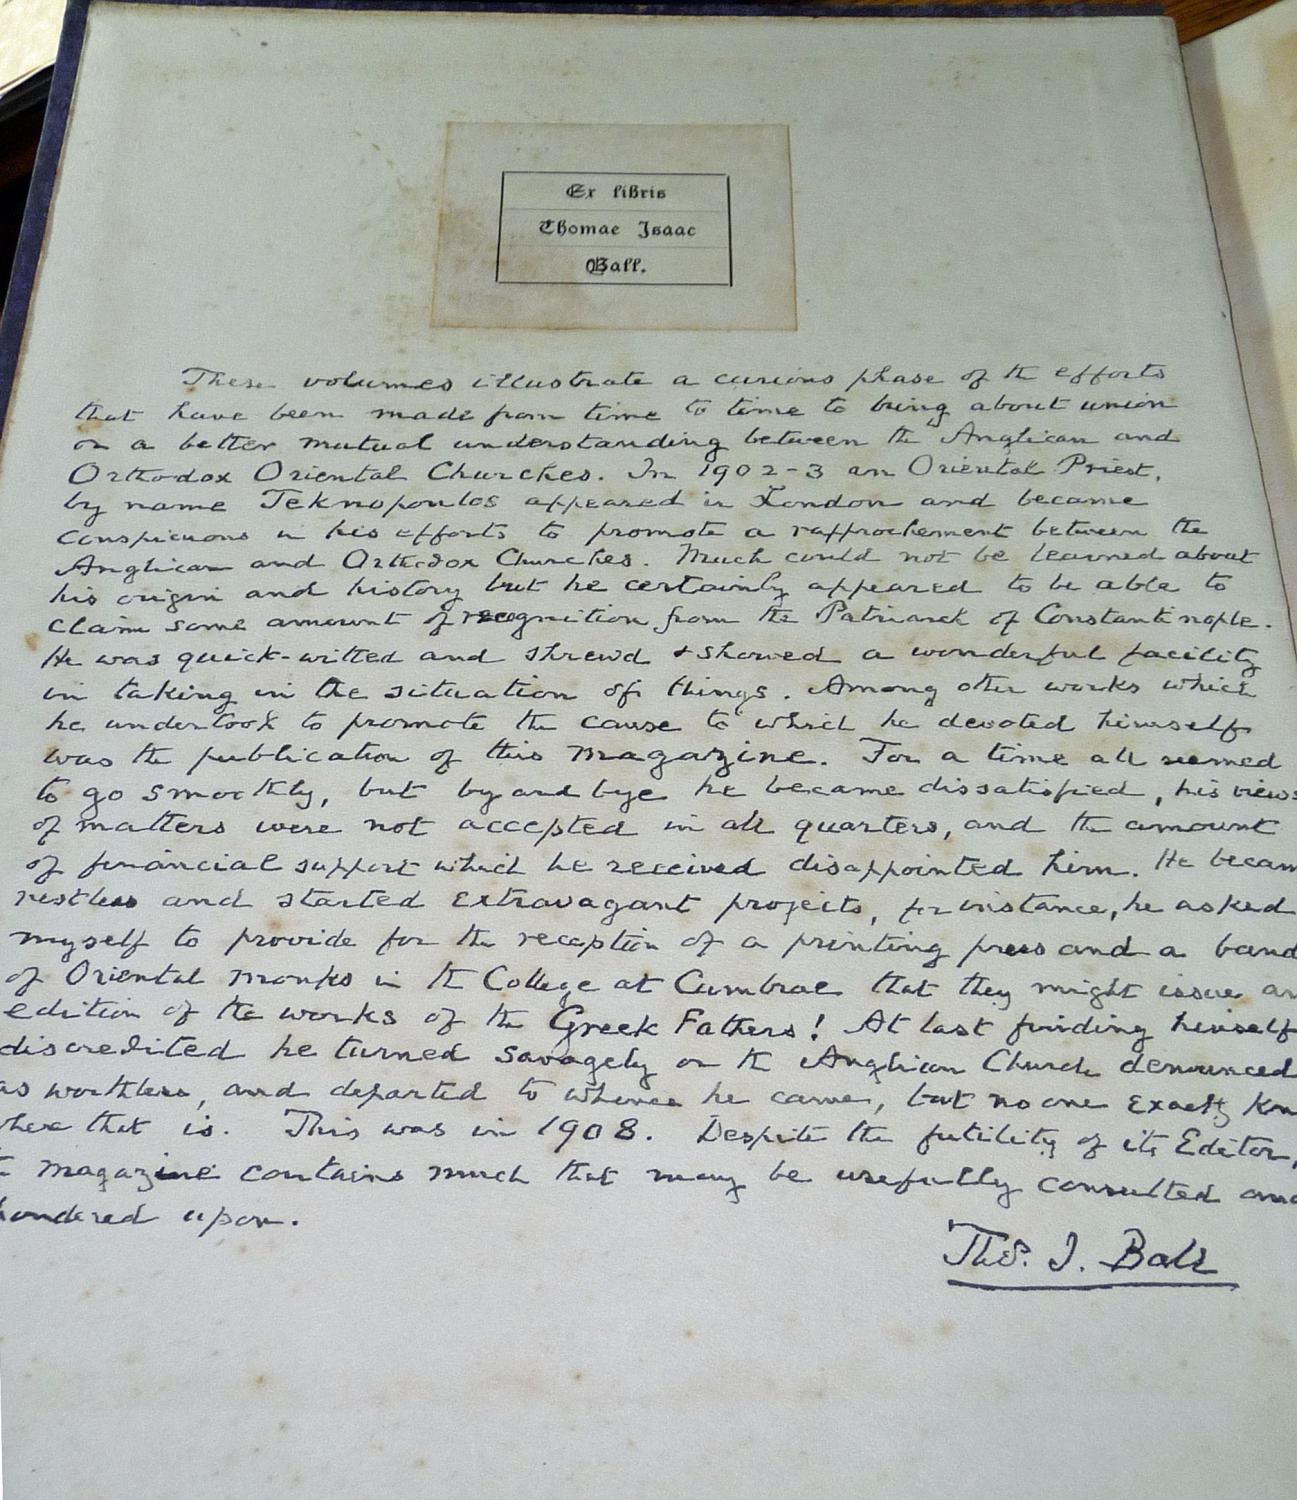 Ex libris
Thomae Isaac
Ball.
These volumes illustrate a curious phase of the efforts
that have been made from time to time to bring about union
or a better mutual understanding between the Anglican and
Orthodox Oriental Churches. In 1902-3 an Oriental Priest,
by name Teknopoulos appeared in London and became
conspicuous in his efforts to promote a rapprochement between the
Anglican and Orthodox Churches. Much could not be learned about
his origin and history but he certainly appeared to be able to
claim some amount of recognition from the Patriarch of Constantinople.
He was quick-witted and shrewd & showed a wonderful facility
in taking in the situation of things. Among other works which
he undertook to promote the cause to which he devoted himself
was the publication of this magazine. For a time all seemed
to go smoothly, but by and bye he became dissatisfied, his views
of matters were not accepted in all quarters, and the amount
of financial support which he received disappointed him. He becam
restless and started extravagant projects, for instance, he asked
myself to provide for the reception of a printing press and a band
of Oriental monks in the College at Cumbrae that they might issue an
edition of the works of the Greek Fathers! At last finding himself
discredited he turned savagely on the Anglican Church denounced
as worthless, and departed to whence he came, but no one exactly kn
where that is. This was in 1908. Despite the futility of its Editor,
magazine contains much that may be usefully consulted and
pondered upon.
Thos. I. Ball